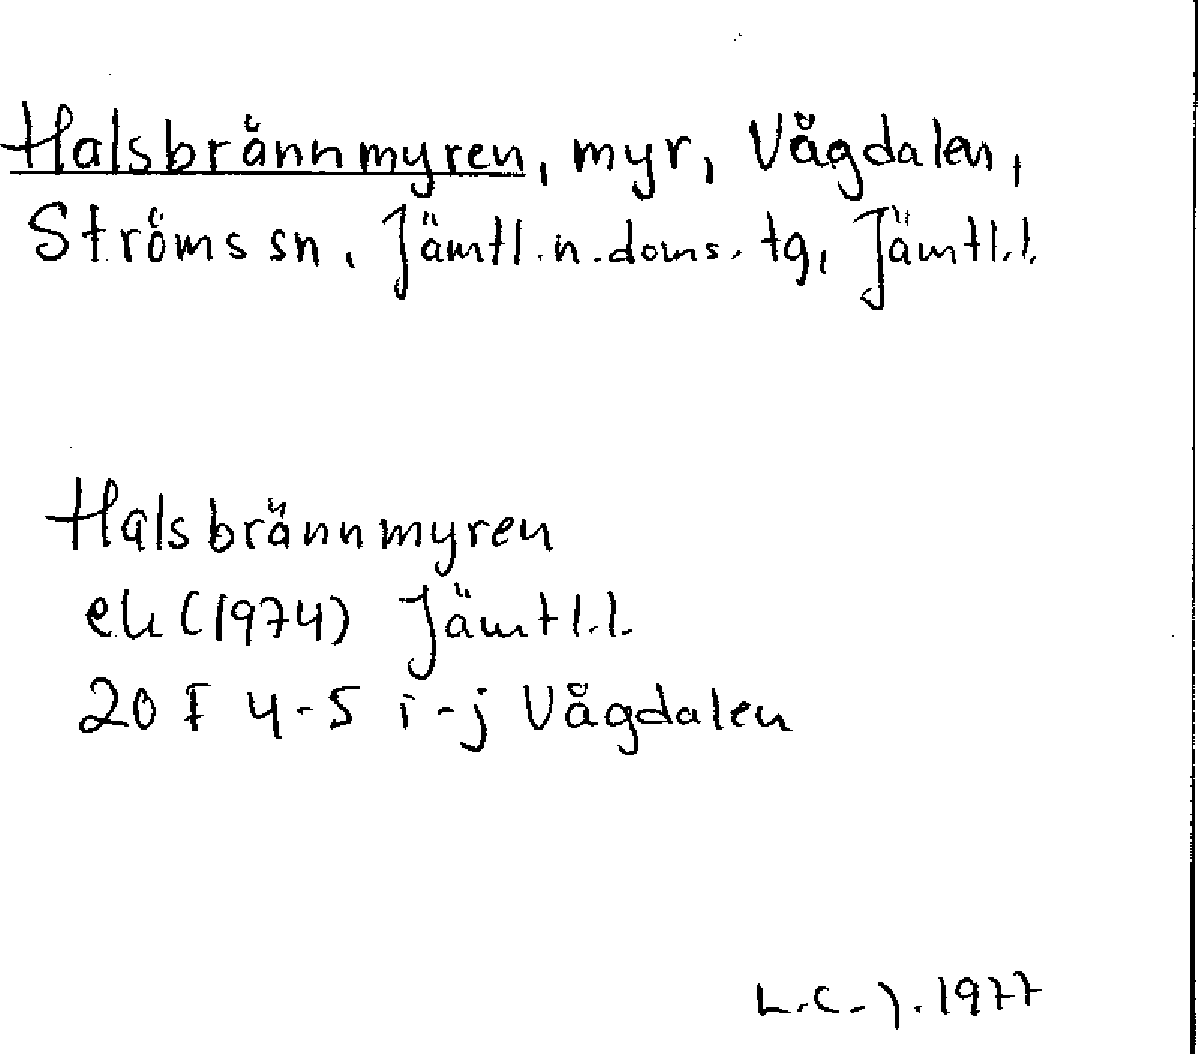 Halsbrännmyren, myr, Vågdalen,
Ströms sn, Jämtl.n.doms.tg, Jämtl.l.
Halsbrännmyren
ek (1974) Jämtl.l.
20 F 4-5 i-j Vågdalen
L.C-).1977